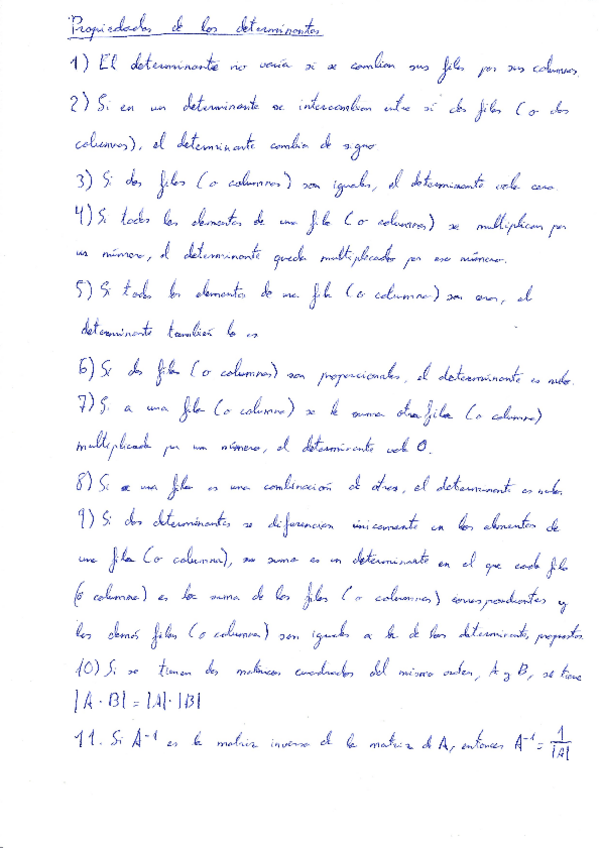 Propiedades de los determinantes
1) El determinante no varía si se cambian sus filas por sus columnas.
2) Si en un determinante se intercambian entre sí dos filas (o dos
columnas), el determinante cambia de signo
3) Si dos filas (o columnas) son iguales, el determinante vale cero.
4) Si todos los elementos de una fila (o columnas) se multiplican por
un número, el determinante queda multiplicado por ese número.
5) Si todos los elementos de una fila (o columna) son ceros, el
determinante también lo es
6) Si dos filas (o columnas) son proporcionales, el determinante es nulo.
7) Si a una fila (o columna) se le suma otra fila (o columna)
multiplicada por un número, el determinante vale 0.
8) Si una fila es una combinación de otras, el determinante es nulo.
9) Si dos determinantes se diferencian únicamente en los elementos de
una fila (o columna), su suma es un determinante en el que cada fila
(o columna) es la suma de las filas (o columnas) correspondientes y
las demás filas (o columnas) son iguales a la de los determinantes propuestos
10) Si se tienen dos matrices cuadradas del mismo orden, A y B, se tiene
|A · B| = |A| · |B|
11. Si A⁻¹ es la matriz inversa de la matriz de A, entonces A⁻¹ = 1/|A|